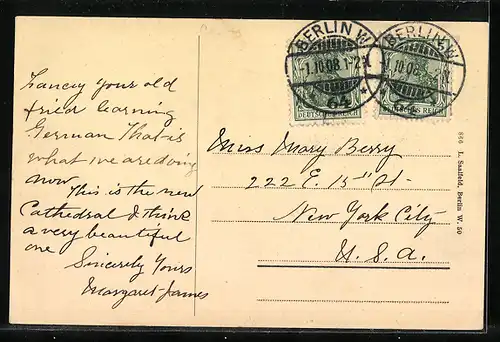 BERLIN W
-1.10.08 1-2N
64
BERLIN W
1.10.08
DEUTSCHES REICH
Fancy your old
frien learning
German That is
what we are doing
now
This is the new
Cathedral I think
a very beautiful
one
Sincerely Yours
Margaret James
Miss Mary Berry
222 E. 15" St-
New York City
U. S. A.
866 L. Saalfeld, Berlin W. 50